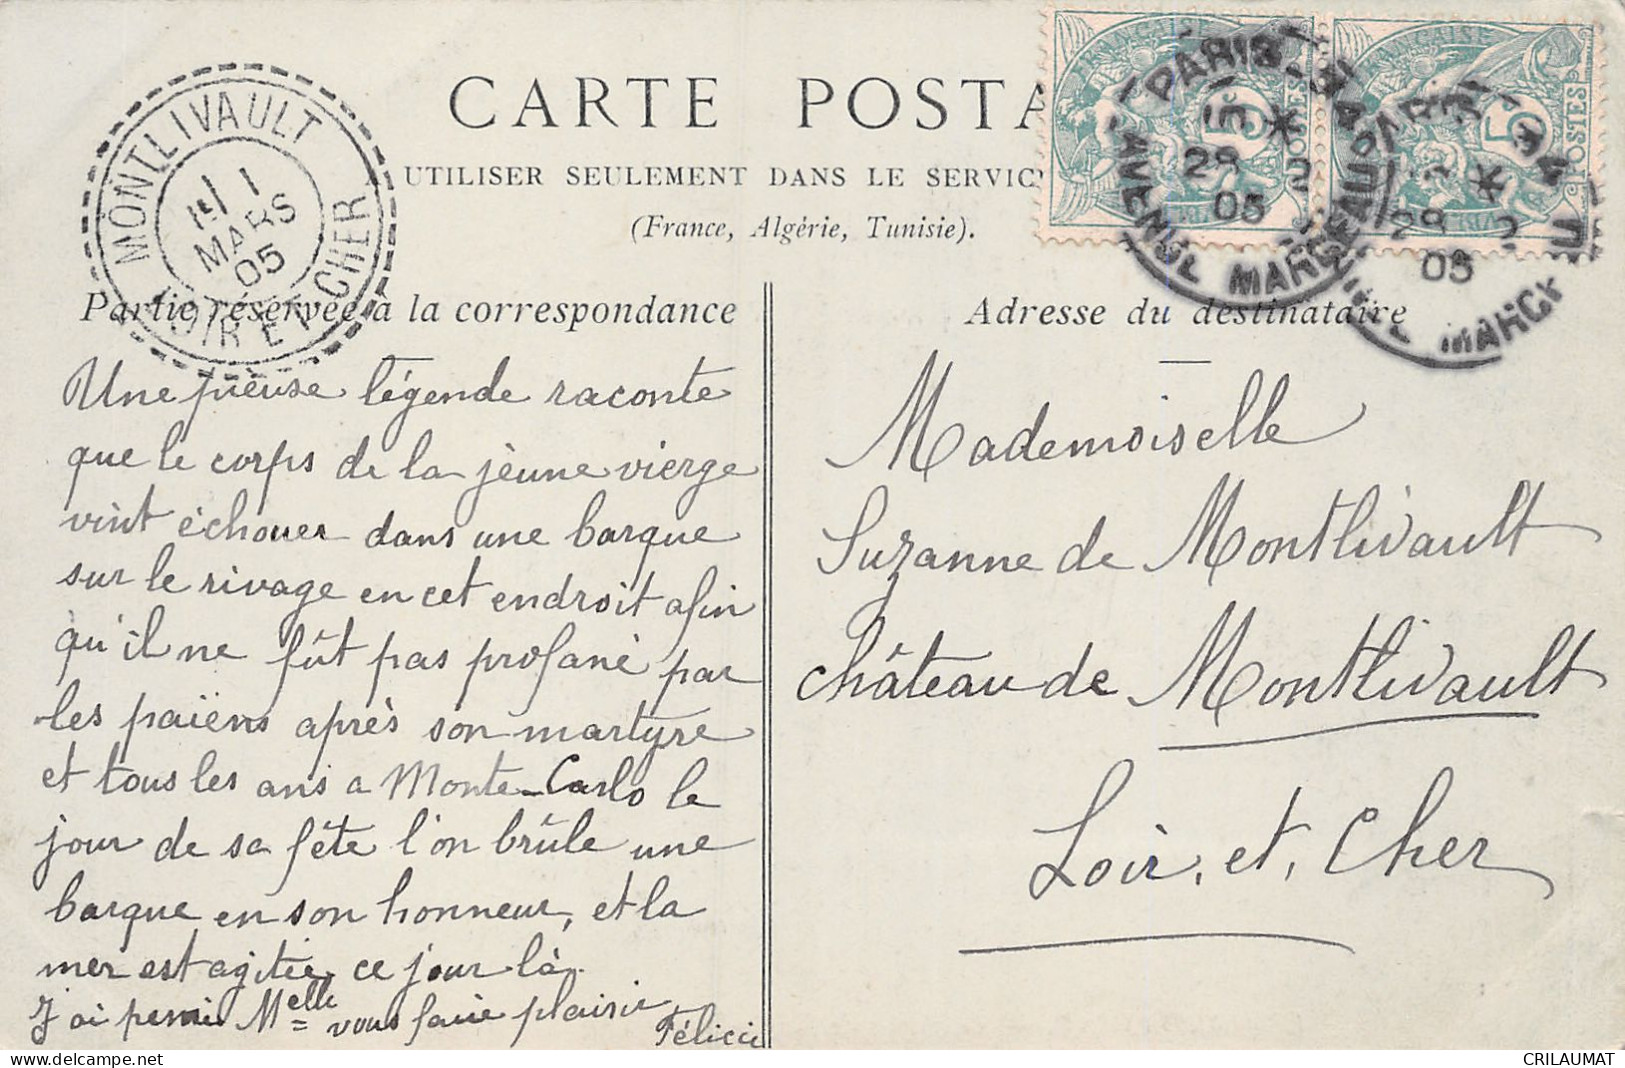 CARTE POSTA
UTILISER SEULEMENT DANS LE SERVIC
(France, Algérie, Tunisie).
MONTLIVAULT
1
MARS
05
LOIR ET CHER
FRANÇAISE
5c
POSTES
PARIS-34
28
05
AVENUE MARCEAU
5
POSTES
28
05
Partie réservée à la correspondance
Adresse du destinataire
Une pieuse légende raconte
que le corps de la jeune vierge
vint échouer dans une barque
sur le rivage en cet endroit afin
qu'il ne fût pas profané par
les païens après son martyre
et tous les ans a Monte-Carlo le
jour de sa fête l'on brûle une
barque en son honneur, et la
mer est agitée ce jour là.
J'ai pensé Melle vous faire plaisir
Félicci
Mademoiselle
Suzanne de Montlivault
château de Montlivault
Loir, et, Cher
delcampe.net
CRILAUMAT